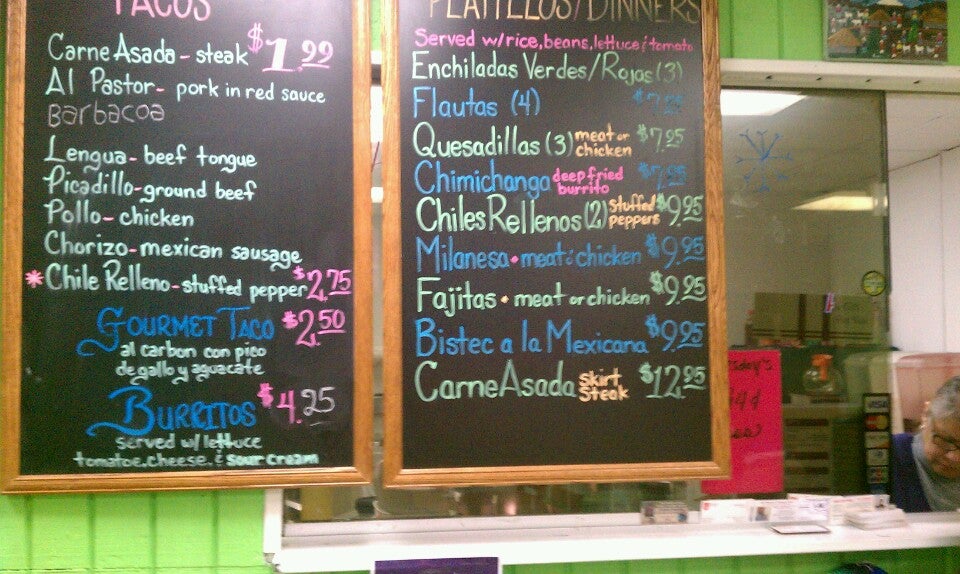 TACOS
Carne Asada - steak $1.99
Al Pastor - pork in red sauce
Barbacoa
Lengua - beef tongue
Picadillo - ground beef
Pollo - chicken
Chorizo - mexican sausage
* Chile Relleno - stuffed pepper $2.75
Gourmet Taco $2.50
al carbon con pico
de gallo y aguacate
Burritos $4.25
served w/ lettuce
tomatoe, cheese, & sour cream
PLATILLOS/DINNERS
Served w/rice, beans, lettuce & tomato
Enchiladas Verdes/Rojas (3)
Flautas (4)
Quesadillas (3) meat or chicken $7.95
Chimichanga deep fried burrito
Chiles Rellenos (2) Stuffed peppers $9.95
Milanesa • meat & chicken $9.95
Fajitas • meat or chicken $9.95
Bistec a la Mexicana $9.95
Carne Asada skirt steak $12.95
VISA